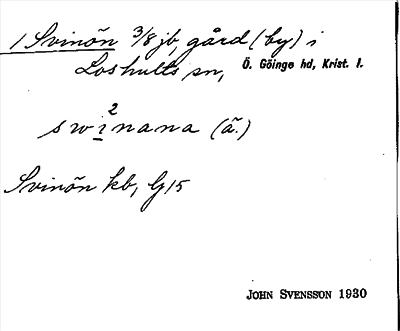 1 Svinön 3/8 jb, gård (by) i
Loshults sn, Ö. Göinge hd, Krist. l.
2
swi̲nana (ä.)
Svinön kb, G15
JOHN SVENSSON 1930